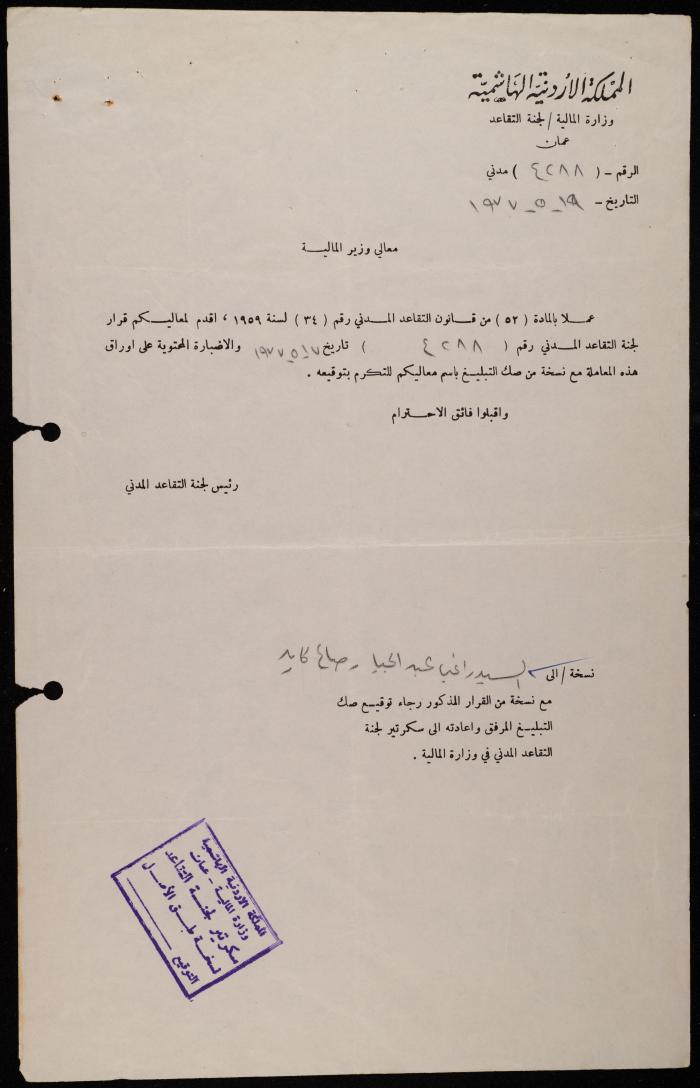 المملكة الأردنية الهاشمية
وزارة المالية / لجنة التقاعد
عمان
الرقم - ( ٤٢٨٨ ) مدني
التاريخ - ١٩-٥-١٩٧٧
معالي وزير المالية
عملا بالمادة ( ٥٢ ) من قانون التقاعد المدني رقم ( ٣٤ ) لسنة ١٩٥٩ ، اقدم لمعاليكم قرار
لجنة التقاعد المدني رقم ( ٤٢٨٨ ) تاريخ ١٧-٥-١٩٧٧ والاضبارة المحتوية على اوراق
هذه المعاملة مع نسخة من صك التبليغ باسم معاليكم للتكرم بتوقيعه .
واقبلوا فائق الاحترام
رئيس لجنة التقاعد المدني
نسخة / الى السيد راغب عبد الجبار صالح كايد
مع نسخة من القرار المذكور رجاء توقيع صك
التبليغ المرفق واعادته الى سكرتير لجنة
التقاعد المدني في وزارة المالية .
المملكة الاردنية الهاشمية
وزارة المالية - عمان
سكرتير لجنة التقاعد
نسخة طبق الأصل
التوقيع